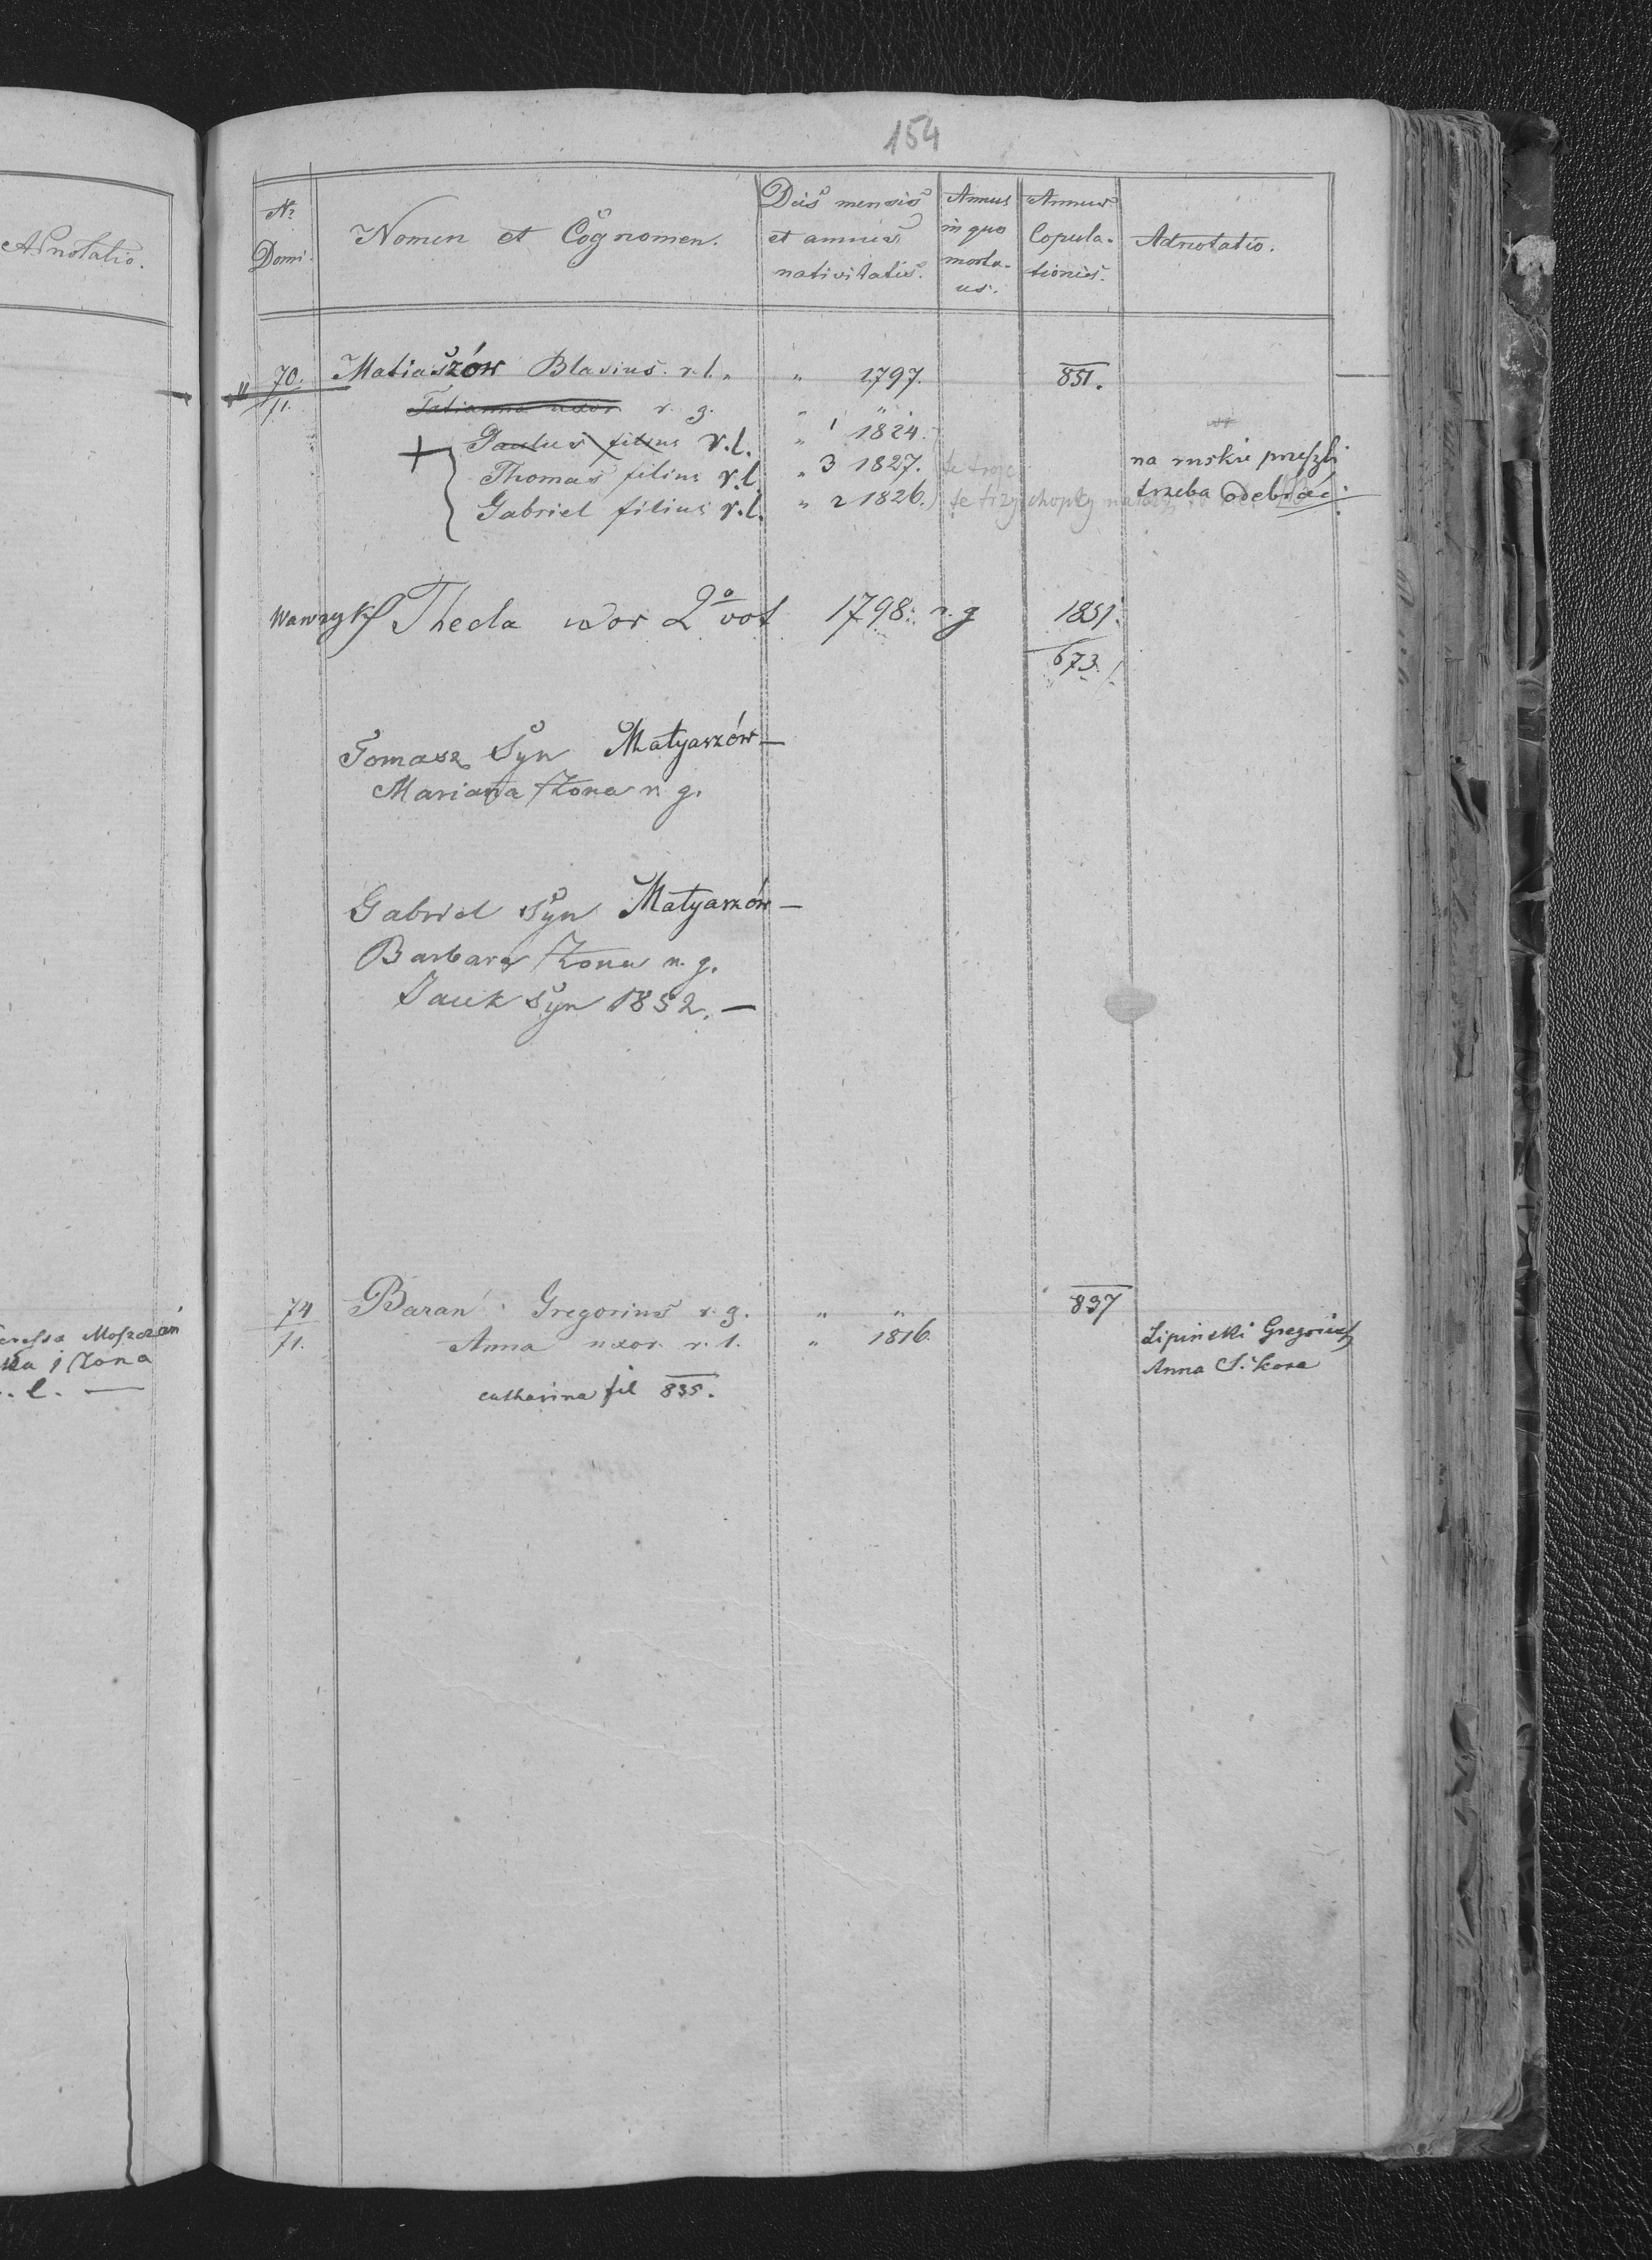 154
Adnotatio.
Nr Domi.
Nomen et Cognomen.
Dies mensis et annus nativitatis.
Annus in quo mortu-us.
Annus Copula-tionis.
Adnotatio.
70. Matiaszów Blasius. r. l. „ „ 1797. 851.
71. Tatianna uxor r. g. „ „
Paulus filius r.l. „ 1 1824.
Thomas filius r.l. „ 3 1827. te troje na ruskie preszli
Gabriel filius r.l. „ 2 1826. te trzy chopty trzeba odebrać.
Wawryk Thecla uxor 2o vot 1798. r. g 1851.
673.
Tomasz Syn Matyaszów —
Marianna Żona r. g.
Gabriel Syn Matyaszów —
Barbara Żona r. g.
Jacek Syn 1852. —
74 Baran Gregorius r. g. „ „ 837
71. Anna uxor. r. l. „ 1816.
Lipinski Gregorius
Anna Sikora
catharina fil 835.
Moszczan
i Żona
. l. —